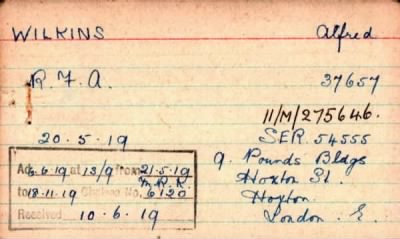 WILKINS Alfred
R.F.A. 37657
11/M/275646.
20.5.19 SER. 54555
9. Pounds Bldgs
Hoxton St.
Hoxton.
London. E.
6.6.19 at 13/9 from 21.5.19
M.P.R.
to 18.11.19 Chelsea No. 6120
Received 10.6.19